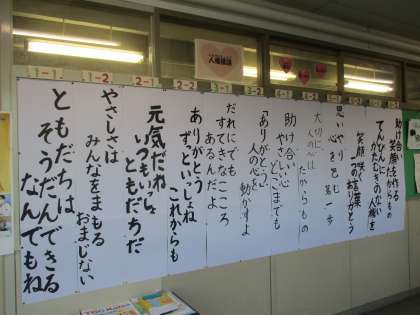 人権標語
1-1
1-2
2-1
2-2
3-1
ともだちは
そうだんできる
なんでもね
やさしさは
みんなをまもる
おまじない
元気だね
いつもいっしょ
ともだちだ
ありがとう
ずっといっしょね
これからも
だれにでも
すてきなこころ
あるんだよ
「ありがとう」
人の心を
動かすよ
助け合い
やさしい心
どこまでも
大切に
人の心は
たからもの
思いやり
心を包む
第一歩
笑顔咲く
一つの言葉
ありがとう
てんびんに
かたむきのない
人権を
助け合い
笑顔を作る
たからもの